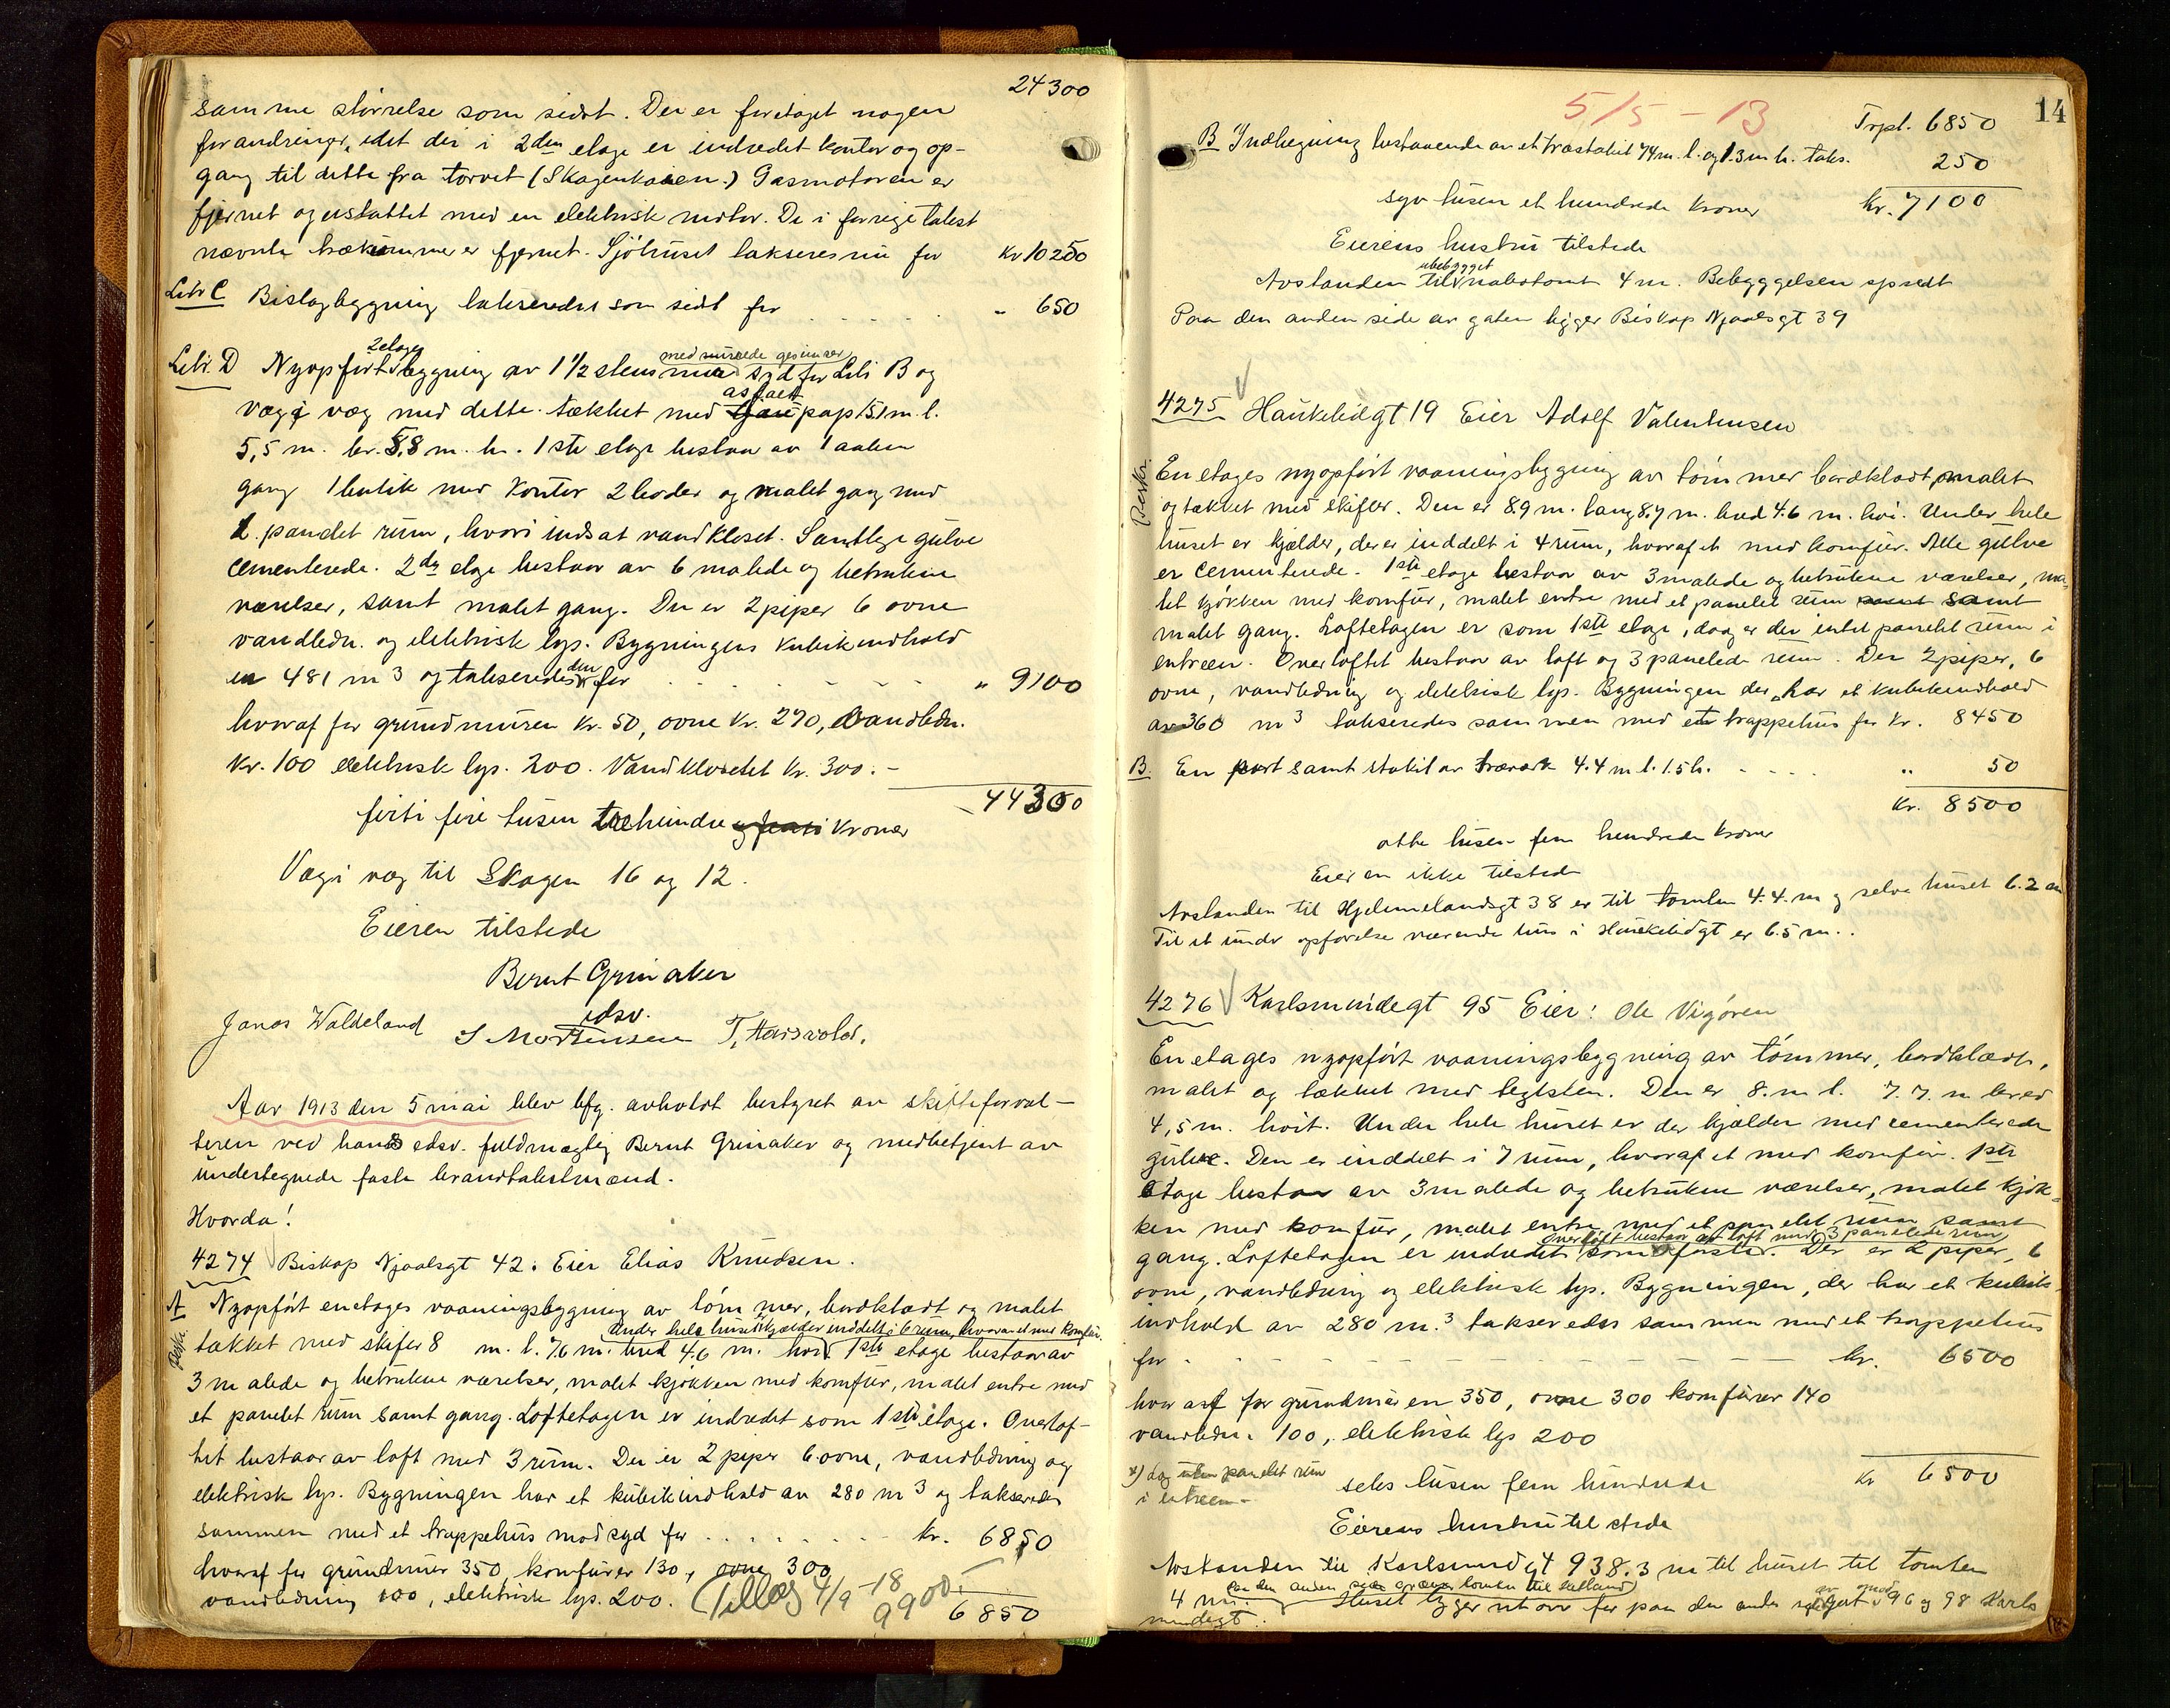 24300
samme størrelse som sidst. Der er foretaget nogen
forandringer, idet der i 2den etage er indredet kontor og op-
gang til dette fra torvet (Skagenkaien.) Gasmotoren er
fjernet og erstattet med en elektrisk motor. De i forrige takst
nævnte trærummer er fjernet. Sjøhuset takseres nu for Kr 10250
Litr C Bislagbygning takseredes som sidst for . . . . . " 650
Litr. D Nyopført 2 etages bygning av 1 1/2 stens mur med murede gesimser syd for Litr B og
væg i væg med dette. Tækket med asfalt pap 15,1 m. l.
5,5 m. br. 5,8 m. h. 1ste etage bestaar av 1 aaben
gang 1 butik med kontor 2 boder og malet gang med
1. panelet rum, hvori indsat vandkloset. Samtlige gulve
cementerede. 2den etage bestaar av 6 malede og betrukne
værelser, samt malet gang. Der er 2 piper 6 ovne
vandledn. og elektrisk lys. Bygningens kubikindhold
er 481 m3 og takseredes den for . . . . . " 9100
hvoraf for grundmuren Kr. 50, ovne Kr. 270, vandledn.
Kr. 100 elektrisk lys. 200. Vandklosetet Kr. 300. -
44300
firti fire tusen tre hundre og femti Kroner
Væg i væg til Skagen 16 og 12.
Eieren tilstede
Bernt Grinaker
edsv.
Jonas Waldeland S Mortensen T. Harsvold.
Aar 1913 den 5 mai blev bfg. avholdt bestyret av skifteforval-
teren ved hans edsv. fuldmægtig Bernt Grinaker og medbetjent av
undertegnede faste brandtakstmænd.
Hvorda!
4274 Biskop Njaalsgt 42. Eier Elias Knudsen.
A Nyopført enetages vaaningsbygning av tømmer, bordklædt og malet
Under hele huset kjælder inddelt i 6 rum, hvorav et med komfur.
Beskr. tækket med skifer 8 m. l. 7.6 m. bred 4.6 m. høi. 1ste etage bestaar av
3 malede og betrukne værelser, malet kjøkken med komfur, malet entre med
et panelet rum samt gang. Loftetagen er indredet som 1ste etage. Overlof-
tet bestaar av loft med 3 rum. Der er 2 piper 6 ovne, vandledning og
elektrisk lys. Bygningen har et kubikindhold av 280 m3 og takseredes
sammen med et trappehus mod syd for . . . . . kr. 6850
hvoraf for grundmur 350, komfurer 130, ovne 300
vandledning 100, elektrisk lys. 200. (Tillæg 4/9 -18 9900.-
6850
14
5/5 - 13
Trpt. 6850
B Indhegning bestaaende av et træstakit 74 m. l. og 1.3 m h. taks. 250
syv tusen et hundrede kroner kr. 7100
Eierens hustru tilstede
Avstanden til ubebygget nabotomt 4 m. Bebyggelsen spredt
Paa den anden side av gaten ligger Biskop Njaalsgt 39
4275 Haukelidgt 19 Eier Adolf Valentinsen
Beskr.
En etages nyopført vaaningsbygning av tømmer bordklædt, malet
og tækket med skifer. Den er 8.9 m. lang 8.7 m. bred 4.6 m. høi. Under hele
huset er kjælder, der er inddelt i 4 rum, hvoraf et med komfur. Alle gulve
er cementerede. 1ste etage bestaar av 3 malede og betrukne værelser, ma-
let kjøkken med komfur, malet entre med et panelet rum samt samt
malet gang. Loftetagen er som 1ste etage, dog er der intet panelet rum i
entreen. Overloftet bestaar av loft og 3 panelede rum. Der 2 piper, 6
ovne, vandledning og elektrisk lys. Bygningen der har et kubikindhold
av 360 m3 takseredes sammen med et trappehus for kr. 8450
B. En port samt stakit av træverk 4.4 m l. 1.5 h. . . . . " 50
kr. 8500
otte tusen fem hundrede kroner
Eieren ikke tilstede
Avstanden til Hjelmelandsgt 38 er til tomten 4.4. m og selve huset 6.2 m
Til et under opførelse værende hus i Haukelidgt er 6.5 m..
4276 Karlsmindegt 95 Eier: Ole Vigøren
En etages nyopført vaaningsbygning av tømmer, bordklædt,
malet og tækket med teglsten. Den er 8. m l. 7.7. m bred
4,5 m. høit. Under hele huset er der kjælder med cementerede
gulve. Den er inddelt i 7 rum, hvoraf et med komfur. 1ste
etage bestaar av 3 malede og betrukne værelser, malet kjøk-
ken med komfur, malet entre med et panelet rum samt
overloft bestaar av loft med 3 panelede rum
gang. Loftetagen er indredet som første. Der er 2 piper, 6
ovne, vandledning og elektrisk lys. Bygningen, der har et kubik-
indhold av 280 m.3 takseredes sammen med et trappehus
for - - - - - kr. 6500
hvoraf for grundmuren 350, ovne 300 komfurer 140
vandledn. 100, elektrisk lys 200
x) dog uten panelet rum
i entreen- seks tusen fem hundrede kr 6500
Eierens hustru tilstede
Avstanden til Karlsmindegt 93 8.3 m til huset til tomten
4 m. Paa den anden side
Huset ligger ut over for paa den anden side av gaten med 96 og 98 Karls
mindegt.